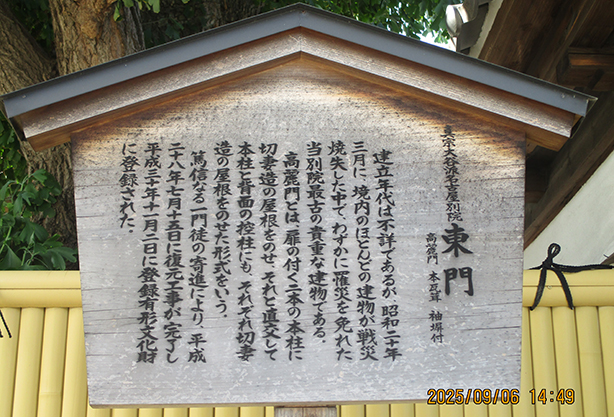 真宗大谷派名古屋別院
東門
高麗門 本瓦葺 袖塀付
建立年代は不詳であるが、昭和二十年
三月に、境内のほとんどの建物が戦災
焼失した中で、わずかに罹災を免れた
当別院最古の貴重な建物である。
高麗門とは、扉の付く二本の本柱に
切妻造の屋根をのせ、それと直交して
本柱と背面の控柱にも、それぞれ切妻
造の屋根をのせた形式をいう。
篤信なる一門徒の寄進により、平成
二十八年七月十五日に復元工事が完了し
平成三十年十一月二日に登録有形文化財
に登録された。
2025/09/06 14:49